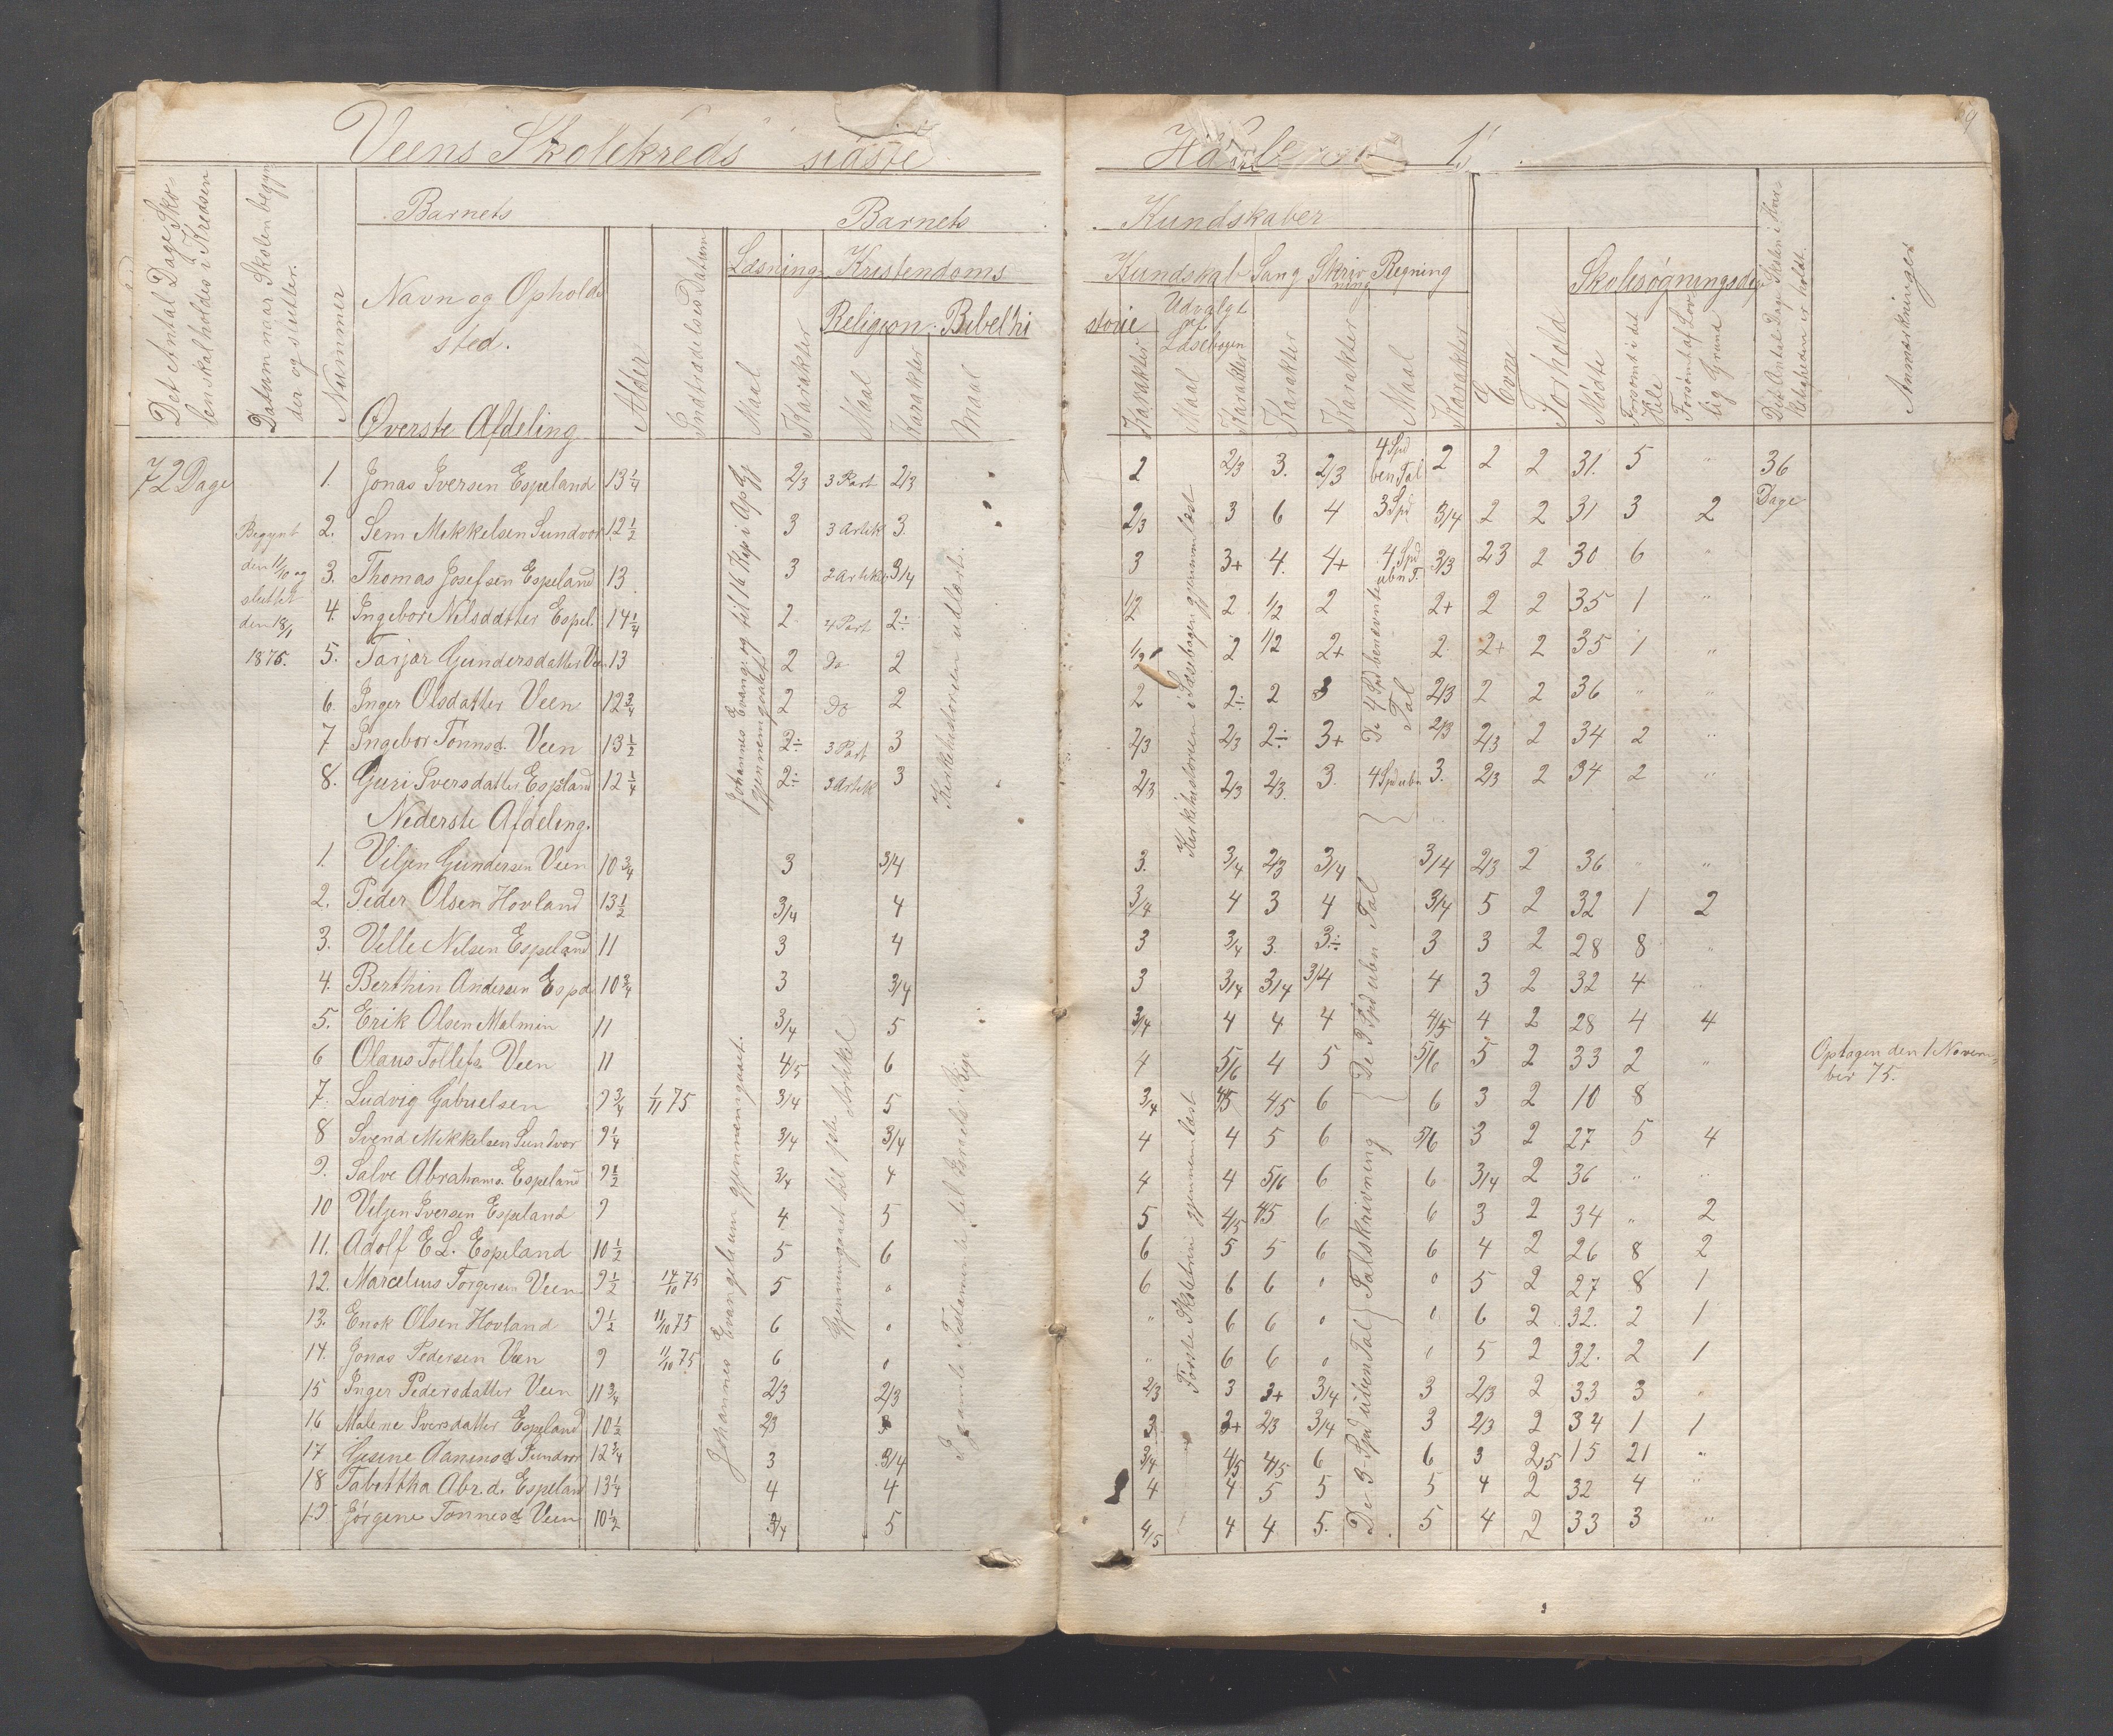 Veens Skolekreds sidste
Det Antal Dage Sko-
len skal holdes i Kredsen
Datum naar Skolen begyn-
der og slutter.
Nummer
Barnets
Navn og Opholds
sted.
Alder
Indtrædelses Datum
Barnets
Læsning Kristendoms
Religion. Bibelhi
Maal Karakter Maal Karakter Maal
Øverste Afdeling
72 Dage
Begynt
den 11/10 og
sluttet
den 18/1
1876.
1. Jonas Iversen Espeland 13 1/4 2/3 3 Part 2/3
2. Sem Mikkelsen Sundvor 12 1/2 3 3 Artik 3.
3. Thomas Josefsen Espeland 13 3 2 Artik 3/4
4. Ingebor Nelsdatter Espel. 14 1/4 2 4 Part 2÷
5. Tarjær Gundersdatter Veen 13 2 Do 2
6. Inger Olsdatter Veen 12 3/4 2 Do 2
7 Ingebor Tønnesd. Veen 13 1/2 2÷ 3 Part 3
8. Guri Iversdatter Espeland 12 1/4 2÷ 3 Artik 3
Johannes Evange. og til 16 Kap i Ap Gj
gjennemgaaet
Kirkehistorien udlært.
Nederste Afdeling.
1. Viljen Gundersen Veen 10 3/4 3 3/4
2. Peder Olsen Hovland 13 1/2 3/4 4
3. Velle Nelsen Espeland 11 3 4
4. Berthin Andersen Espd. 10 3/4 3 3/4
5. Erik Olsen Malmin 11 3/4 5
6 Olaus Tollefs Veen 11 4/5 6
7. Ludvig Gabrielsen 9 3/4 1/11 75 3/4 5
8 Svend Mikkelsen Sundvor 9 1/4 3/4 3/4
9. Salve Abrahams. Espeland 9 1/2 3/4 4
10 Viljen Iversen Espeland 9 4 5
11. Adolf E L. Espeland 10 1/2 5 6
12. Marcelius Torgersen Veen 9 1/2 14/10 75 5 0
13. Enok Olsen Hovland 9 1/2 11/10 75 6 0
14. Jonas Pedersen Veen 9 11/10 75 6 0
15 Inger Pedersdatter Veen 11 3/4 2/3 2/3
16 Malene Iversdatter Espeland 10 1/2 2/3 3
17 Gesine Aanensd Sundvor 12 3/4 3 3/4
18 Tabittha Abr.d. Espeland 13 1/4 4 4
19 Jørgine Tønnesd Veen 10 1/2 3/4 5
Johannes Evangelium gjennemgaaet.
Gjennemgaaet til Artikkel
Gamle Testamente til Israels
1.
Kundskaber
Kundskab Sang Skriv Regning
ning
storie Udvalgt
af
Læsebogen
Karakter Maal Karakter Karakter Karakter Maal Karakter
Evne
Forhold
Skolesøgningsdage
Mødte
Forsømt i det
Hele
Forsømt af Lov-
lig Grund
Det Antal Dage Skolen i Hvir-
keligheden er holdt.
Anmærkninger
2 2/3 3. 2/3 4 Spd ben Tal 2 2 2 31. 5 " 36
Dage
2/3 3 6 4 3 Spd 3/4 2 2 31 3 2
3 3+ 4. 4+ 4 Spd ubn T. 3/3 23 2 30 6 "
1/2 2 1/2 2 2+ 2 2 35 1 "
1/2 2 1/2 2+ 2 2+ 2 35 1 "
2 2÷ 2 3 2/3 2 2 36 " "
2/3 2/3 2÷ 3+ 2/3 2/3 2 34 2 "
2/3 2/3 2/3 3. 4 Spd ubn 3. 2/3 2 34 2 "
Kirkehistorien i Læsebogen gjennemlæst
De 4 Spd benævnte
Tal
3. 3/4 2/3 3/4 3/4 2/3 2 36 " "
3/4 4 3 4 3/4 5 2 32 1 2
3 3/4 3. 3÷ 3 3 2 28 8 "
3 3/4 3/4 3/4 4 3 2 32 4 "
3/4 4 4 4 4/5 4 2 28 4 4
4 5/6 4 5 5/6 5 2 33 2 "
Optagen den 1 Novem-
ber 75.
3/4 4/5 4/5 6 6 3 2 10 8
4 4 5 6 5/6 3 2 27 5 4
4 4 5/6 6 6 3/4 2 36 " "
5 4/5 4/5 6 6 3 2 34 " 2
6 5 5 6 6 4 2 26 8 2
6 6 6 0 0 5 2 27 8 1
" 6 6 0 0 6 2 32. 2 1
" 6 6 0 0 5 2 32. 2 1
2/3 3 3+ 3/4 3 2/3 2 33 3 "
3 3+ 2/3 3/4 3 2/3 2 34 1 1
3/4 4/5 4/5 6 6 3 2,5 15 21 "
4 4 5 5 5 4 2 32 4 "
4/5 4 4 5. 5 4 2 33 3 "
Første Skoletrin gjennemlæst
De 3 Spd ubn Tal
Talskrivning
De 3 Spd uben Tal